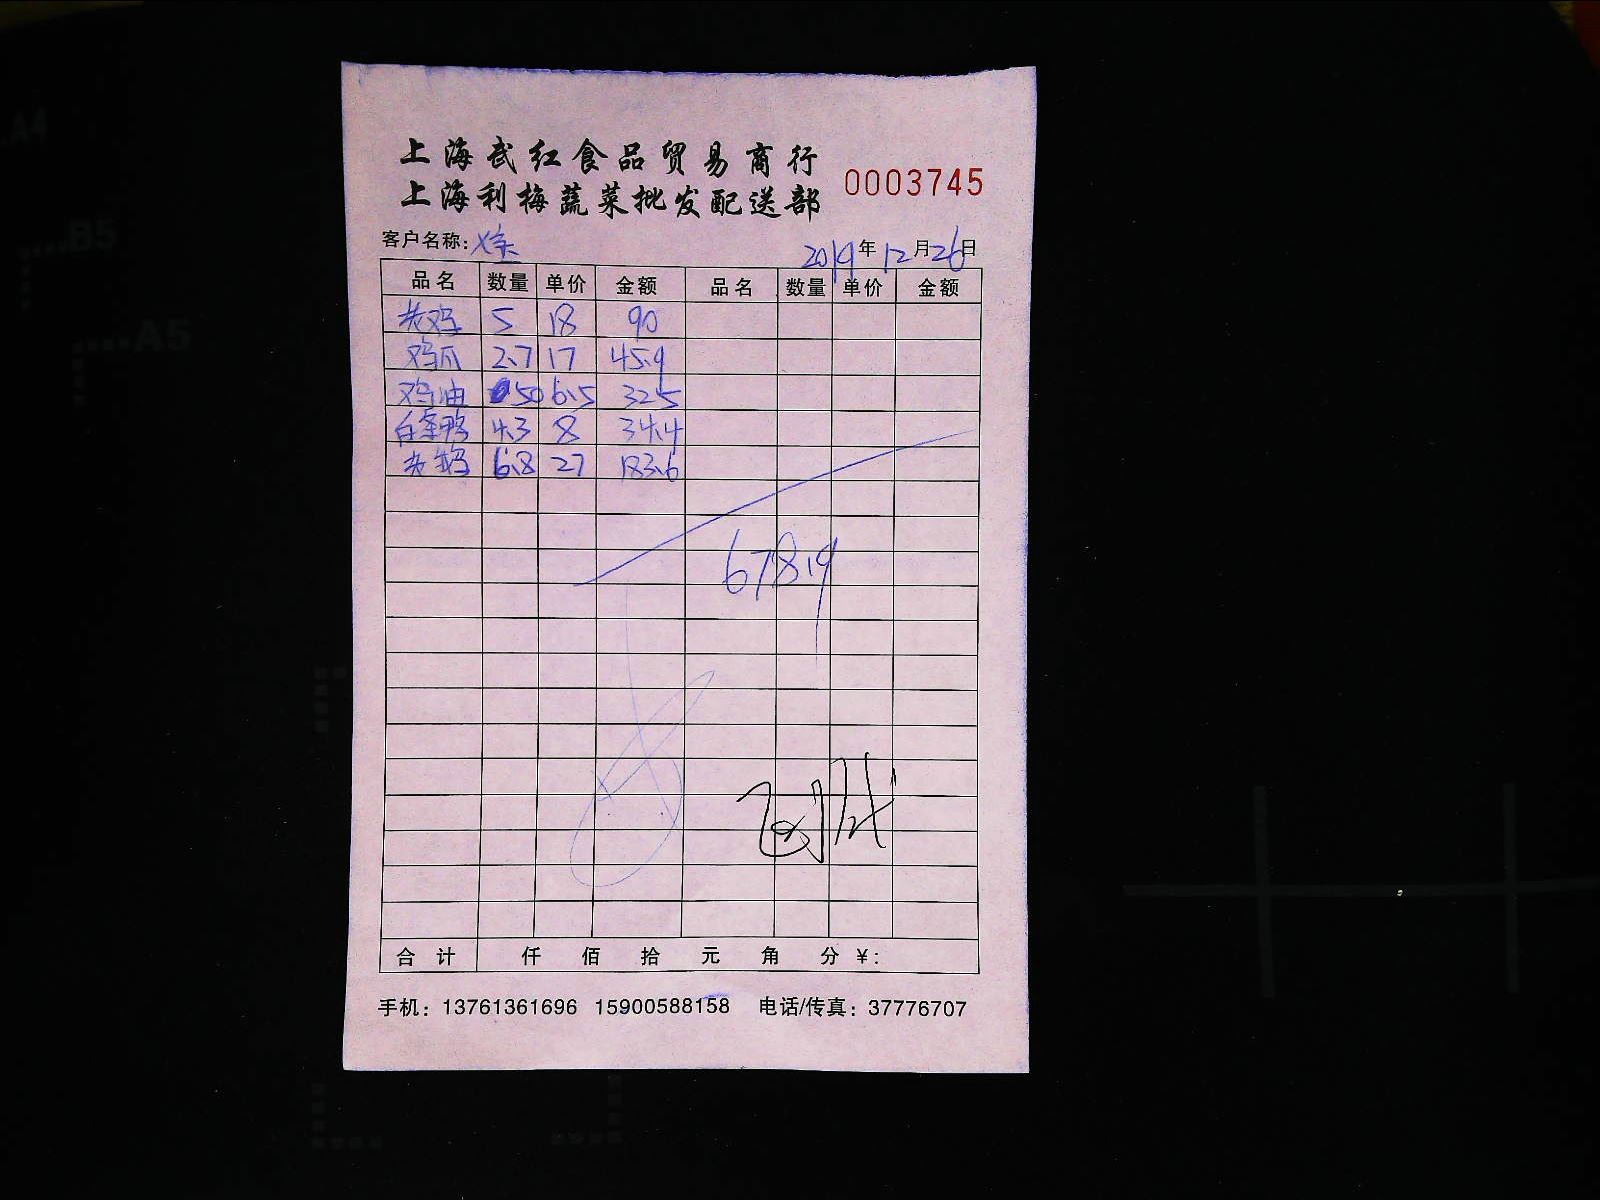 上海武红食品贸易商行
上海利梅蔬菜批发配送部 0003745
客户名称： 2019年12月26日
品名 数量 单价 金额 品名 数量 单价 金额
老鸡 5 18 90
鸡爪 2.7 17 45.9
鸡油 50 6.5 325
白条鸭 4.3 8 34.4
老鹅 6.8 27 183.6
678.9
合计 仟 佰 拾 元 角 分 ¥:
手机：13761361696 15900588158 电话/传真：37776707
A4
B5
A5